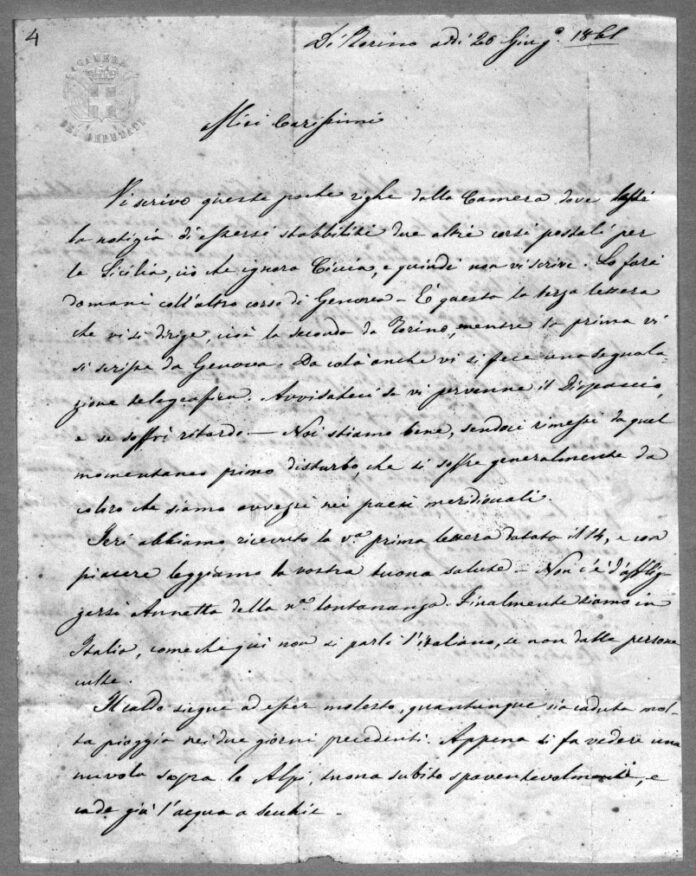 4
Di Torino addì 26 Giug.º 1861
CAMERA
DEI DEPUTATI
Miei Carissimi
Vi scrivo queste poche righe dalla Camera dove lessi
la notizia d'essersi stabbiliti due altri corsi postali per
la Sicilia, ciò che ignora Ciccia, e quindi non vi scrive. Lo farà
domani coll'altro corso di Genova – È questa la terza lettera
che vi si dirige, cioè la seconda da Torino, mentre la prima vi
si scrisse da Genova. Da colà anche vi si fece una segnala-
zione telegrafica. Avvisateci se vi pervenne il Dispaccio,
e se soffrì ritardo. — Noi stiamo bene, sendoci rimessi da quel
momentaneo primo disturbo, che si soffre generalmente da
coloro che siamo avvezzi nei paesi meridionali.
Ieri abbiamo ricevuto la v.ª prima lettera datata il 14, e con
piacere leggiamo la vostra buona salute – Non c'è d'afflig-
gersi Annetta della n.ª lontananza. Finalmente siamo in
Italia, comechè quì non si parli l'italiano, se non dalle persone
culte.
Il caldo siegue ad esser molesto, quantunque sia caduta mol-
ta pioggia nei due giorni precedenti. Appena si fa vedere una
nuvola sopra le Alpi, tuona subito spaventevolmente, e
cade giù l'acqua a secchie –